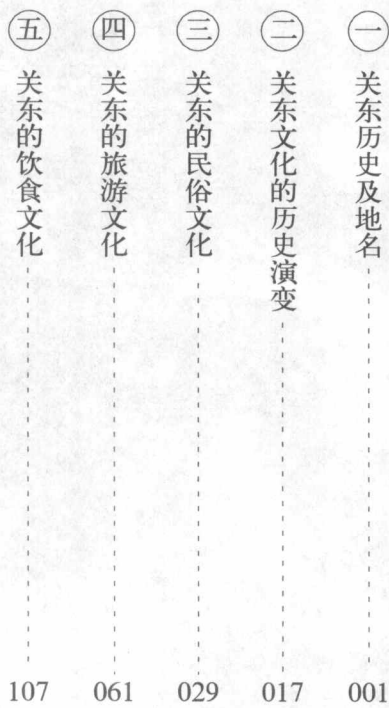 ㊀ 关东历史及地名 001
㊁ 关东文化的历史演变 017
㊂ 关东的民俗文化 029
㊃ 关东的旅游文化 061
㊄ 关东的饮食文化 107